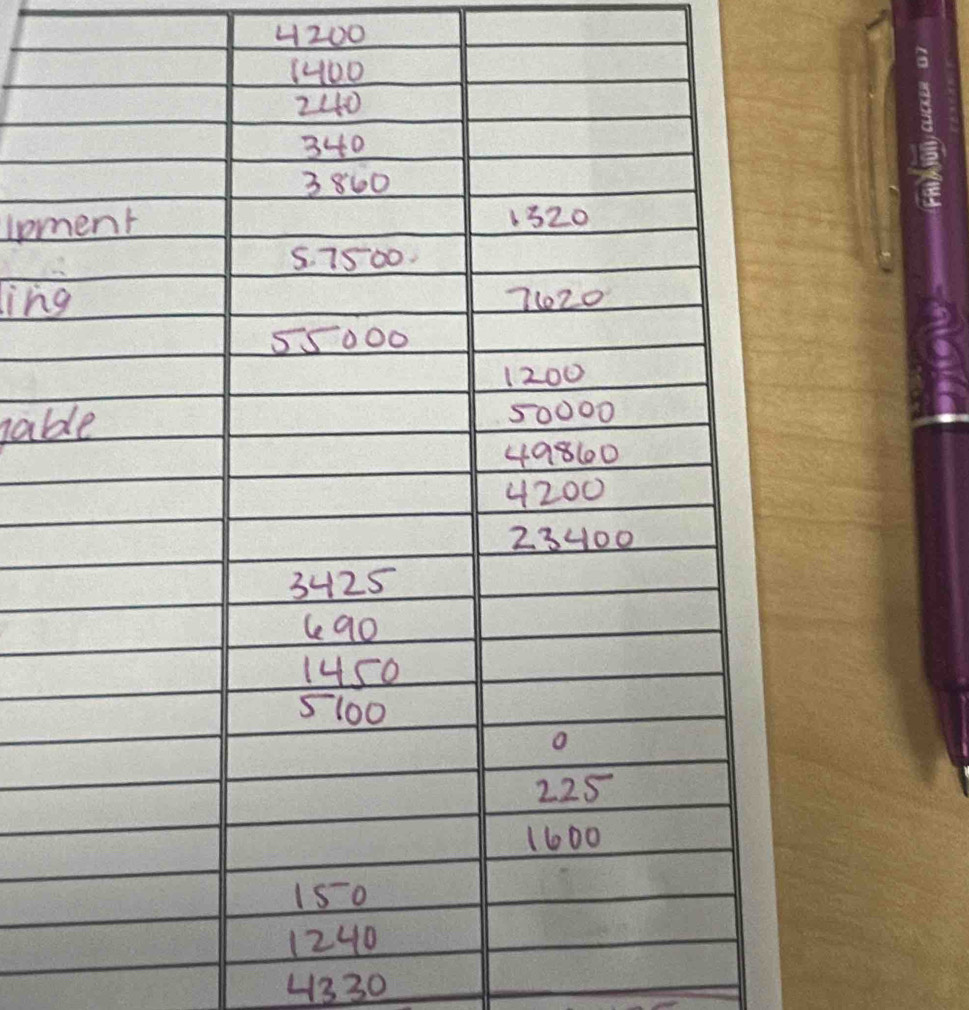 4200
1400
240
340
3860
ipment 1320
57500
ling 7620
55000
1200
yable 50000
49860
4200
23400
3425
690
1450
5100
0
225
1600
150
1240
4330
FRIXION CLICKER 07